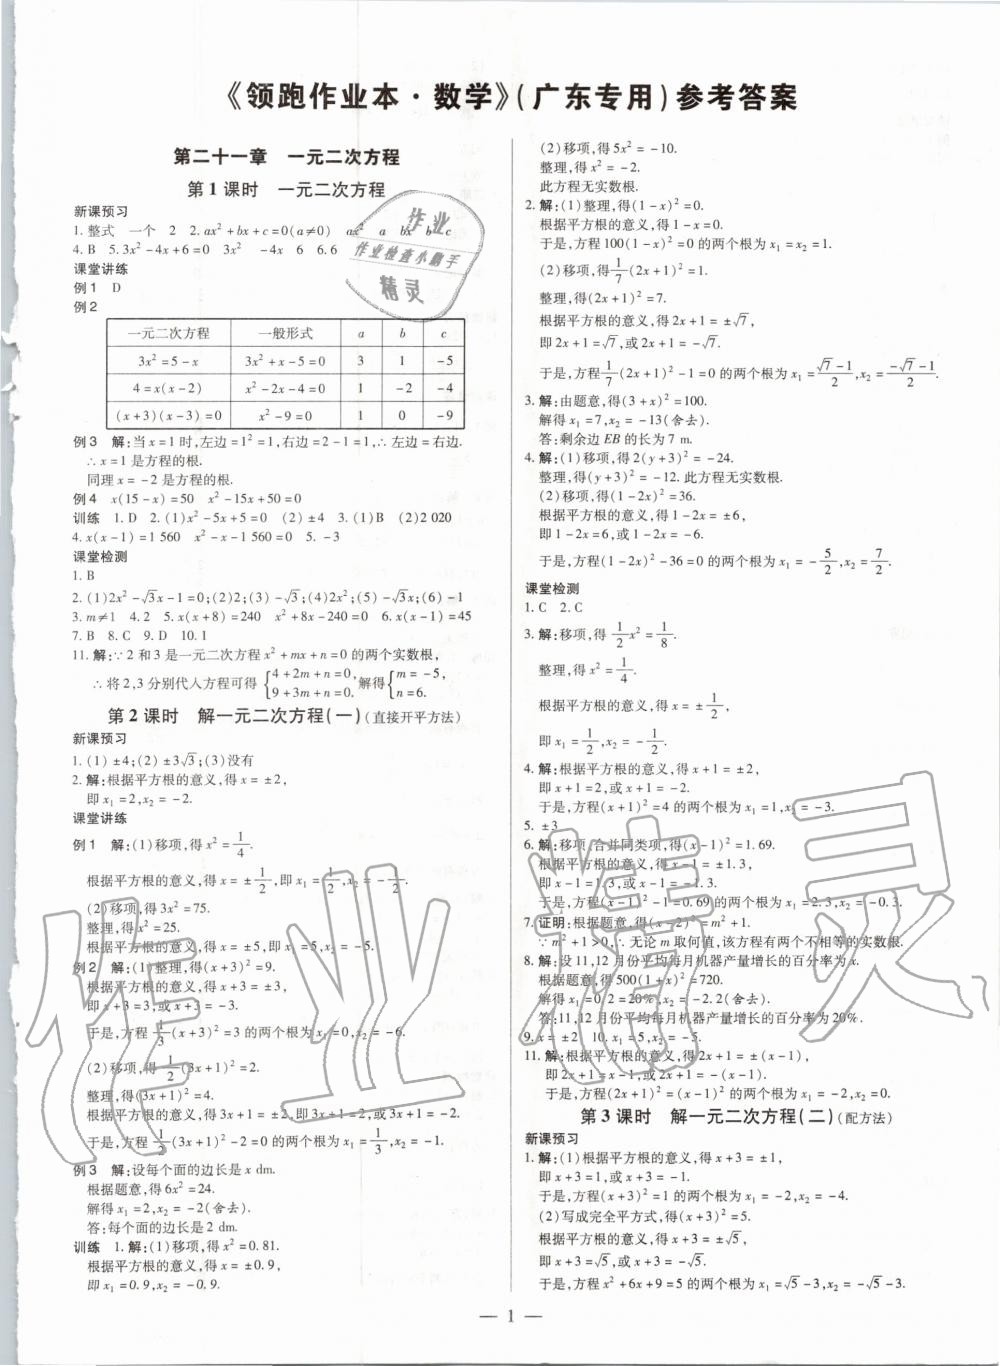 《领跑作业本·数学》(广东专用)参考答案
第二十一章　一元二次方程
第1课时　一元二次方程
新课预习
1. 整式　一个　2　2. ax²+bx+c=0(a≠0)　ax²　a　bx　b　c
4. B　5. 3x²-4x+6=0　3x²　-4x　6　6. 6
课堂讲练
例1　D
例2
一元二次方程　一般形式　a　b　c
3x²=5-x　3x²+x-5=0　3　1　-5
4=x(x-2)　x²-2x-4=0　1　-2　-4
(x+3)(x-3)=0　x²-9=0　1　0　-9
例3　解:当x=1时,左边=1²=1,右边=2-1=1,∴左边=右边.
∴x=1是方程的根.
同理x=-2是方程的根.
例4　x(15-x)=50　x²-15x+50=0
训练　1. D　2. (1)x²-5x+5=0　(2)±4　3. (1)B　(2)2 020
4. x(x-1)=1 560　x²-x-1 560=0　5. -3
课堂检测
1. B
2. (1)2x²-√3x-1=0;(2)2;(3)-√3;(4)2x²;(5)-√3x;(6)-1
3. m≠1　4. 2　5. x(x+8)=240　x²+8x-240=0　6. x(x-1)=45
7. B　8. C　9. D　10. 1
11. 解:∵2和3是一元二次方程x²+mx+n=0的两个实数根,
∴将2,3分别代入方程可得{4+2m+n=0, 9+3m+n=0. 解得{m=-5, n=6.
第2课时　解一元二次方程(一)(直接开平方法)
新课预习
1. (1)±4;(2)±3√3;(3)没有
2. 解:根据平方根的意义,得x=±2,
即x₁=2,x₂=-2.
课堂讲练
例1　解:(1)移项,得x²=1/4.
根据平方根的意义,得x=±1/2,即x₁=1/2,x₂=-1/2.
(2)移项,得3x²=75.
整理,得x²=25.
根据平方根的意义,得x=±5,即x₁=5,x₂=-5.
例2　解:(1)整理,得(x+3)²=9.
根据平方根的意义,得x+3=±3,
即x+3=3,或x+3=-3.
于是,方程1/3(x+3)²=3的两个根为x₁=0,x₂=-6.
(2)移项,得1/2(3x+1)²=2.
整理,得(3x+1)²=4.
根据平方根的意义,得3x+1=±2,即3x+1=2,或3x+1=-2.
于是,方程1/3(3x+1)²-2=0的两个根为x₁=1/3,x₂=-1.
例3　解:设每个面的边长是x dm.
根据题意,得6x²=24.
解得x₁=2,x₂=-2(舍去).
答:每个面的边长是2 dm.
训练　1. 解:(1)移项,得x²=0.81.
根据平方根的意义,得x=±0.9,
即x₁=0.9,x₂=-0.9.
(2)移项,得5x²=-10.
整理,得x²=-2.
此方程无实数根.
2. 解:(1)整理,得(1-x)²=0.
根据平方根的意义,得1-x=0.
于是,方程100(1-x)²=0的两个根为x₁=x₂=1.
(2)移项,得1/7(2x+1)²=1.
整理,得(2x+1)²=7.
根据平方根的意义,得2x+1=±√7,
即2x+1=√7,或2x+1=-√7.
于是,方程1/7(2x+1)²-1=0的两个根为x₁=(√7-1)/2,x₂=(-√7-1)/2.
3. 解:由题意,得(3+x)²=100.
解得x₁=7,x₂=-13(舍去).
答:剩余边EB的长为7 m.
4. 解:(1)移项,得2(y+3)²=-24.
整理,得(y+3)²=-12. 此方程无实数根.
(2)移项,得(1-2x)²=36.
根据平方根的意义,得1-2x=±6,
即1-2x=6,或1-2x=-6.
于是,方程(1-2x)²-36=0的两个根为x₁=-5/2,x₂=7/2.
课堂检测
1. C　2. C
3. 解:移项,得1/2x²=1/8.
整理,得x²=1/4.
根据平方根的意义,得x=±1/2,
即x₁=1/2,x₂=-1/2.
4. 解:根据平方根的意义,得x+1=±2,
即x+1=2,或x+1=-2.
于是,方程(x+1)²=4的两个根为x₁=1,x₂=-3.
5. ±3
6. 解:移项,合并同类项,得(x-1)²=1.69.
根据平方根的意义,得x-1=±1.3,
即x-1=1.3,或x-1=-1.3.
于是,方程(x-1)²-1=0.69的两个根为x₁=2.3,x₂=-0.3.
7. 证明:根据题意,得(x-2)²=m²+1.
∵m²+1>0,∴无论m取何值,该方程有两个不相等的实数根.
8. 解:设11,12月份平均每月机器产量增长的百分率为x.
根据题意,得500(1+x)²=720.
解得x₁=0.2=20%,x₂=-2.2(舍去).
答:11,12月份平均每月机器产量增长的百分率为20%.
9. x=±2　10. x₁=5,x₂=-5.
11. 解:根据平方根的意义,得2x+1=±(x-1),
即2x+1=x-1,或2x+1=-(x-1).
于是,方程(2x+1)²=(x-1)²的两个根为x₁=-2,x₂=0.
第3课时　解一元二次方程(二)(配方法)
新课预习
1. 解:(1)根据平方根的意义,得x+3=±1,
即x+3=1,或x+3=-1.
于是,方程(x+3)²=1的两个根为x₁=-2,x₂=-4.
(2)写成完全平方式,得(x+3)²=5.
根据平方根的意义,得x+3=±√5,
即x+3=√5,或x+3=-√5.
于是,方程x²+6x+9=5的两个根为x₁=√5-3,x₂=-√5-3.
— 1 —
作业
作业检查小帮手
精灵
作业精灵